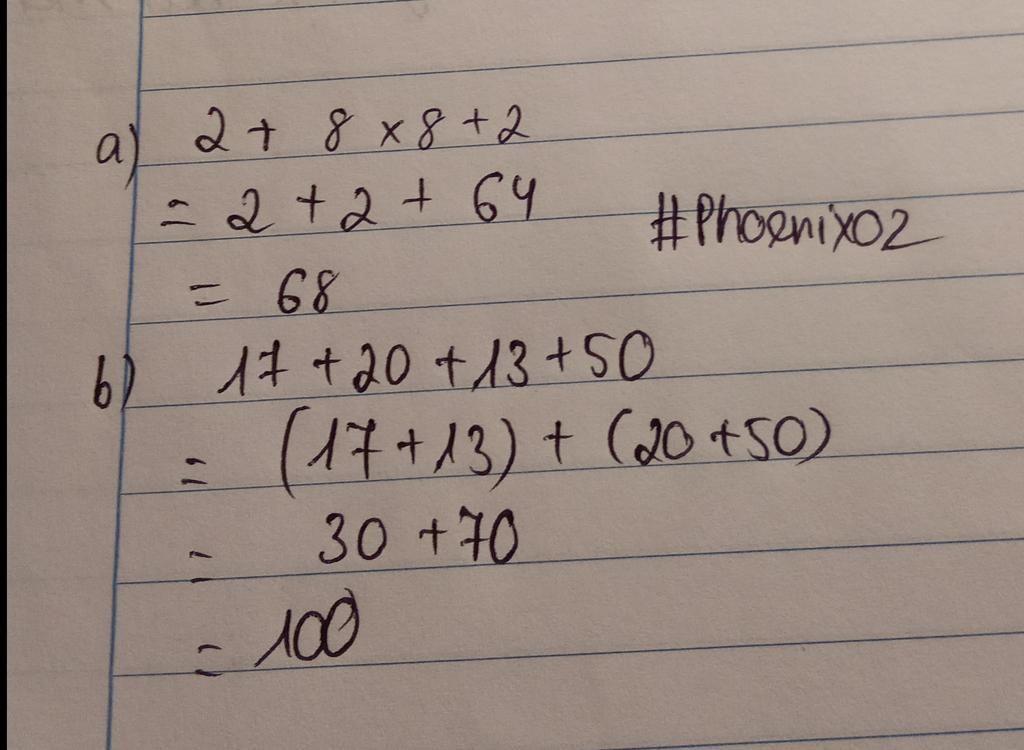 a) 2 + 8 × 8 + 2
= 2 + 2 + 64
#Phoenix02
= 68
b) 17 + 20 + 13 + 50
= (17 + 13) + (20 + 50)
= 30 + 70
= 100